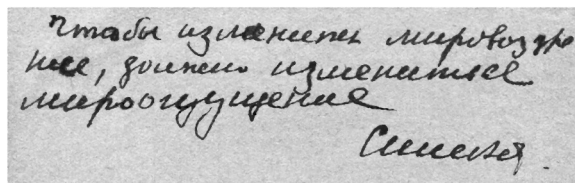 Чтобы изменить мировоззре
ние, должно измениться
мироощущение